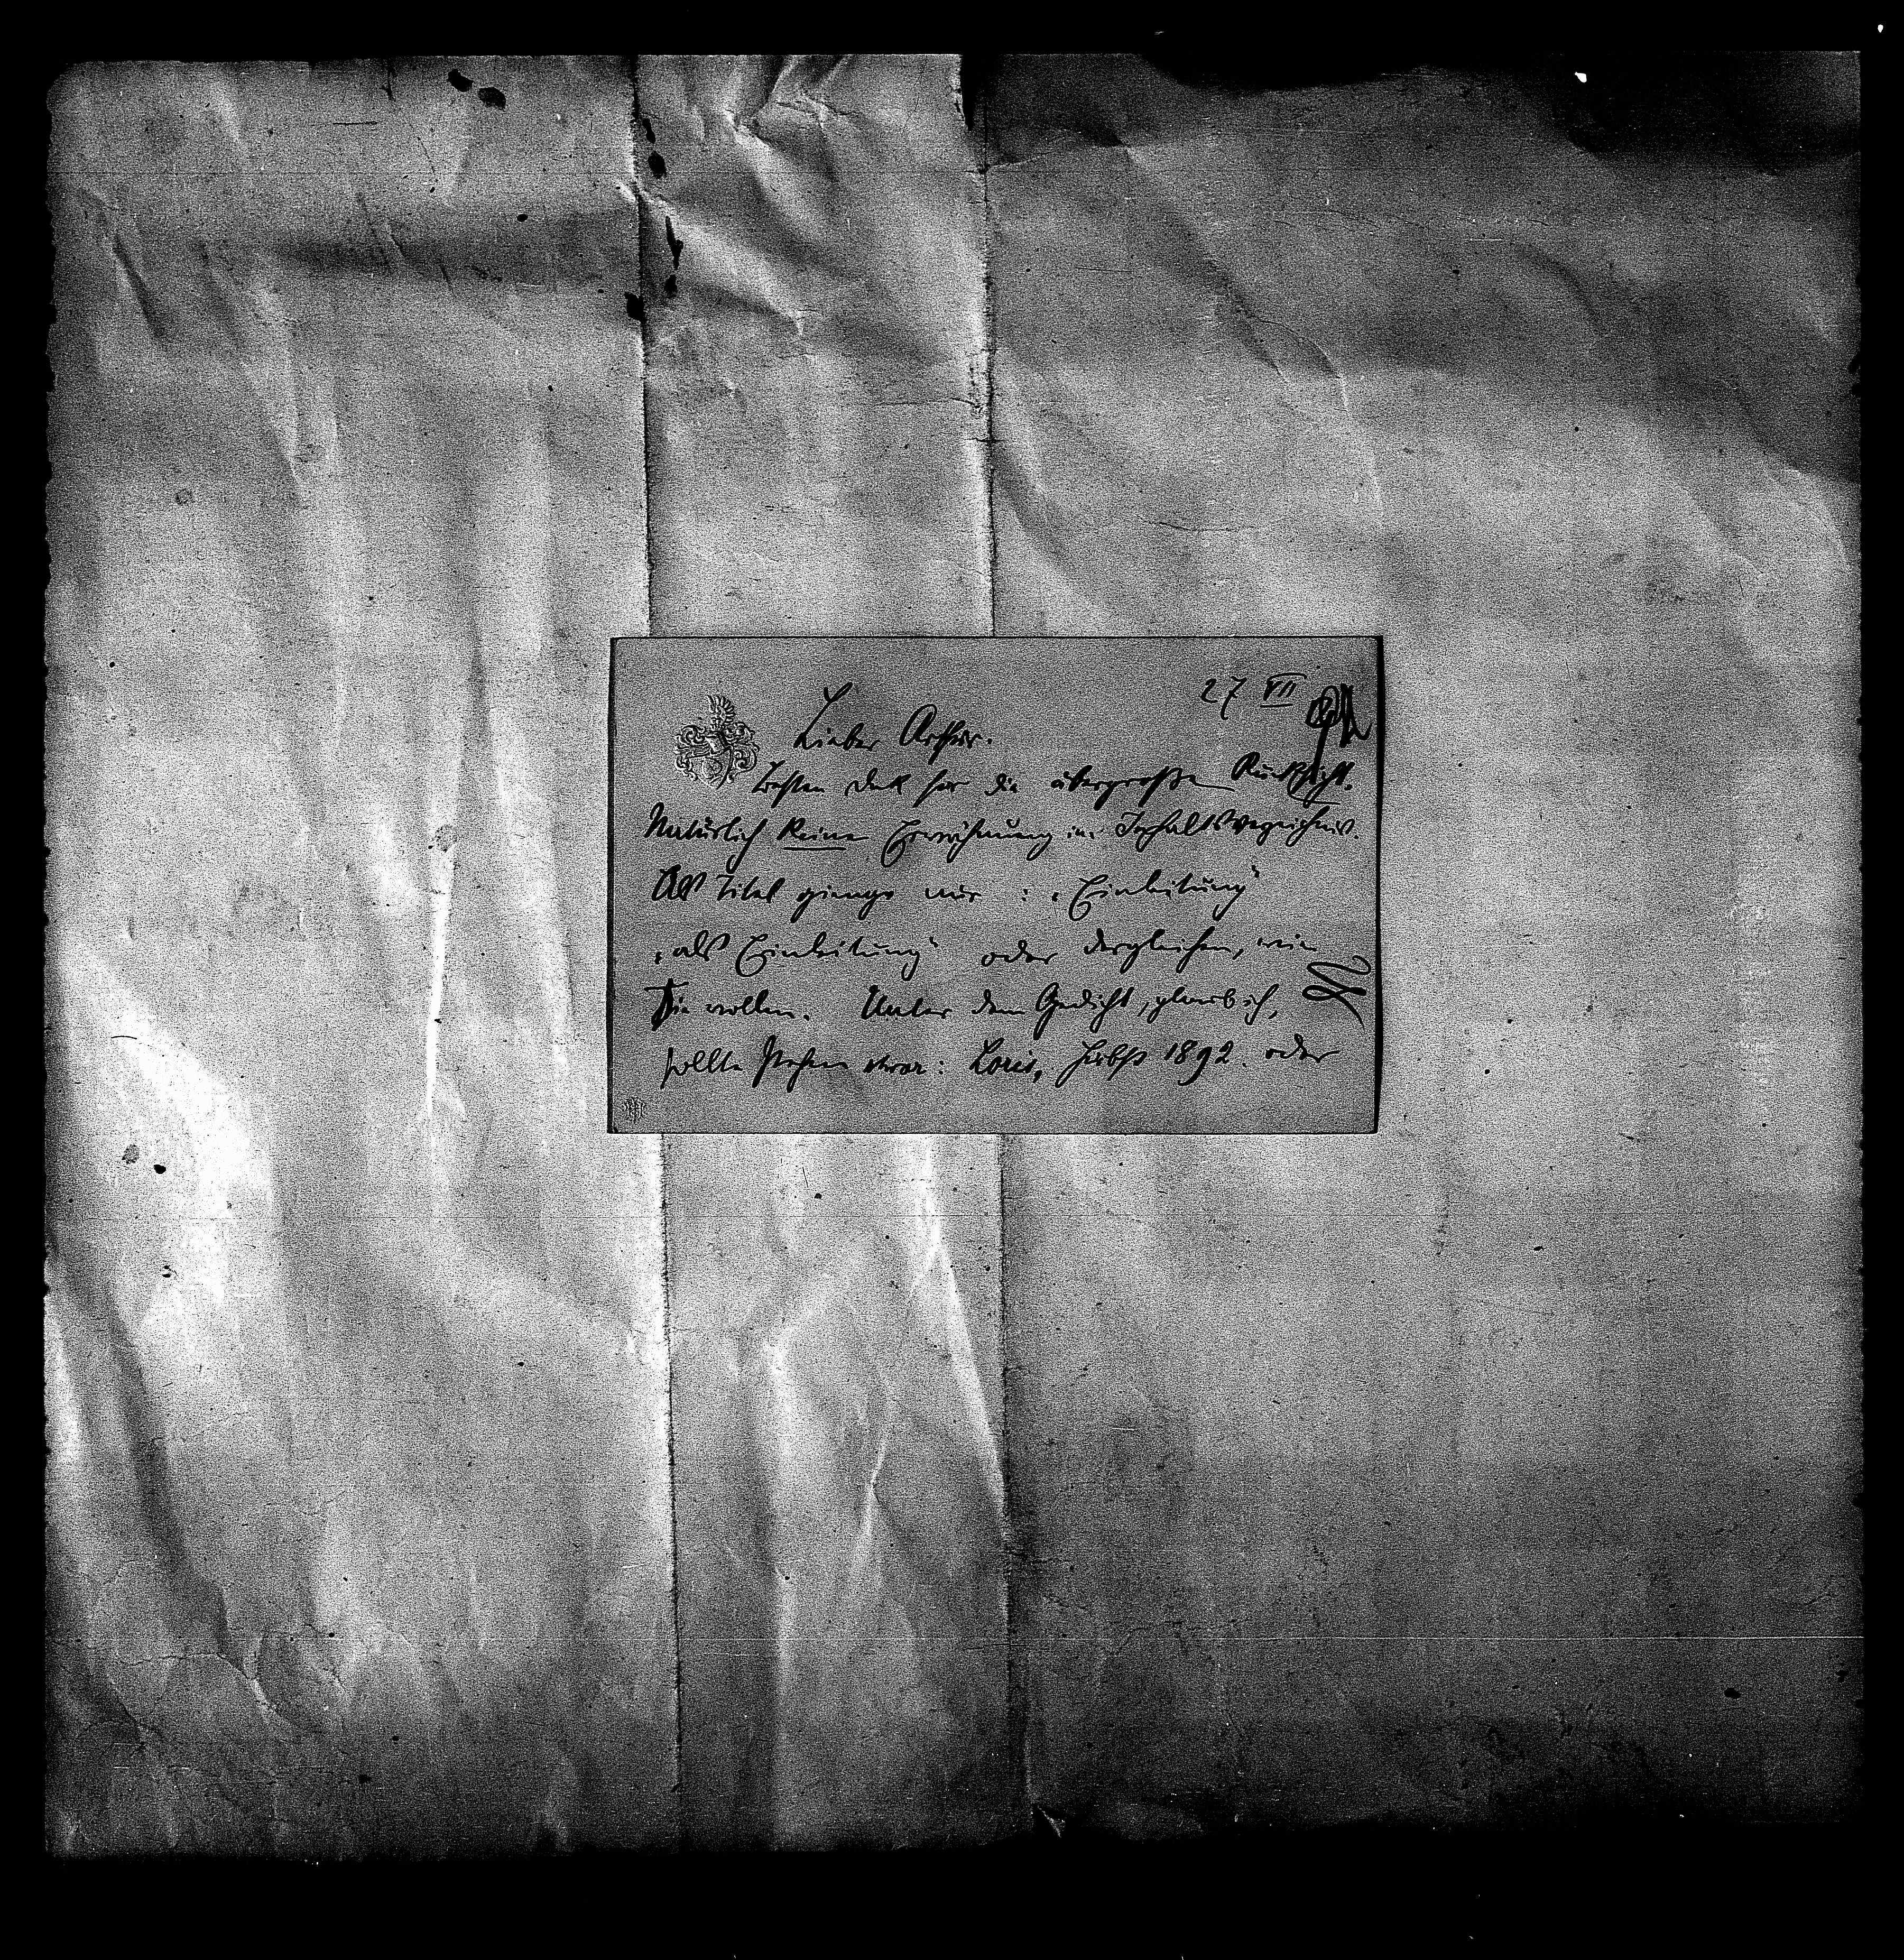 27 VII
Lieber Arthur.
besten Dank für die übergroße Rücksicht.
Natürlich keine Erwähnung im Inhaltsverzeichnis.
Als Titel gienge nur: „Einleitung“
„als Einleitung“ oder dergleichen, wie
Sie wollen. Unter dem Gedicht, glaub ich,
sollte stehen etwa: Loris, Herbst 1892. oder